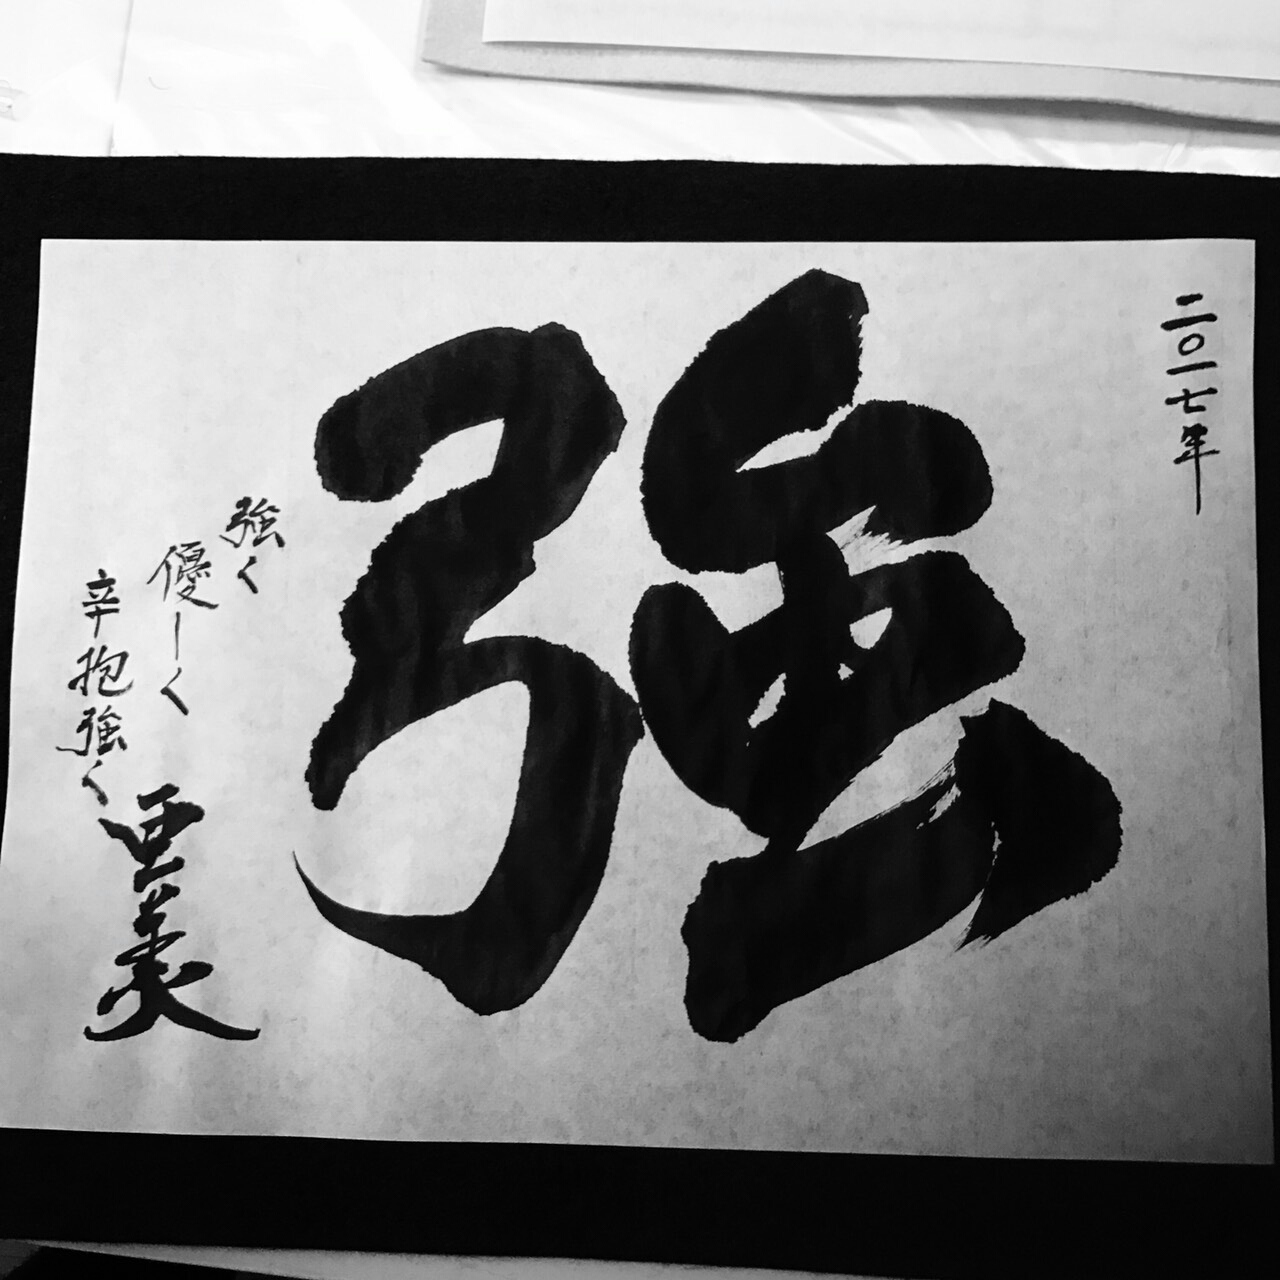 二〇一七年
強
強く
優しく
辛抱強く
亜美